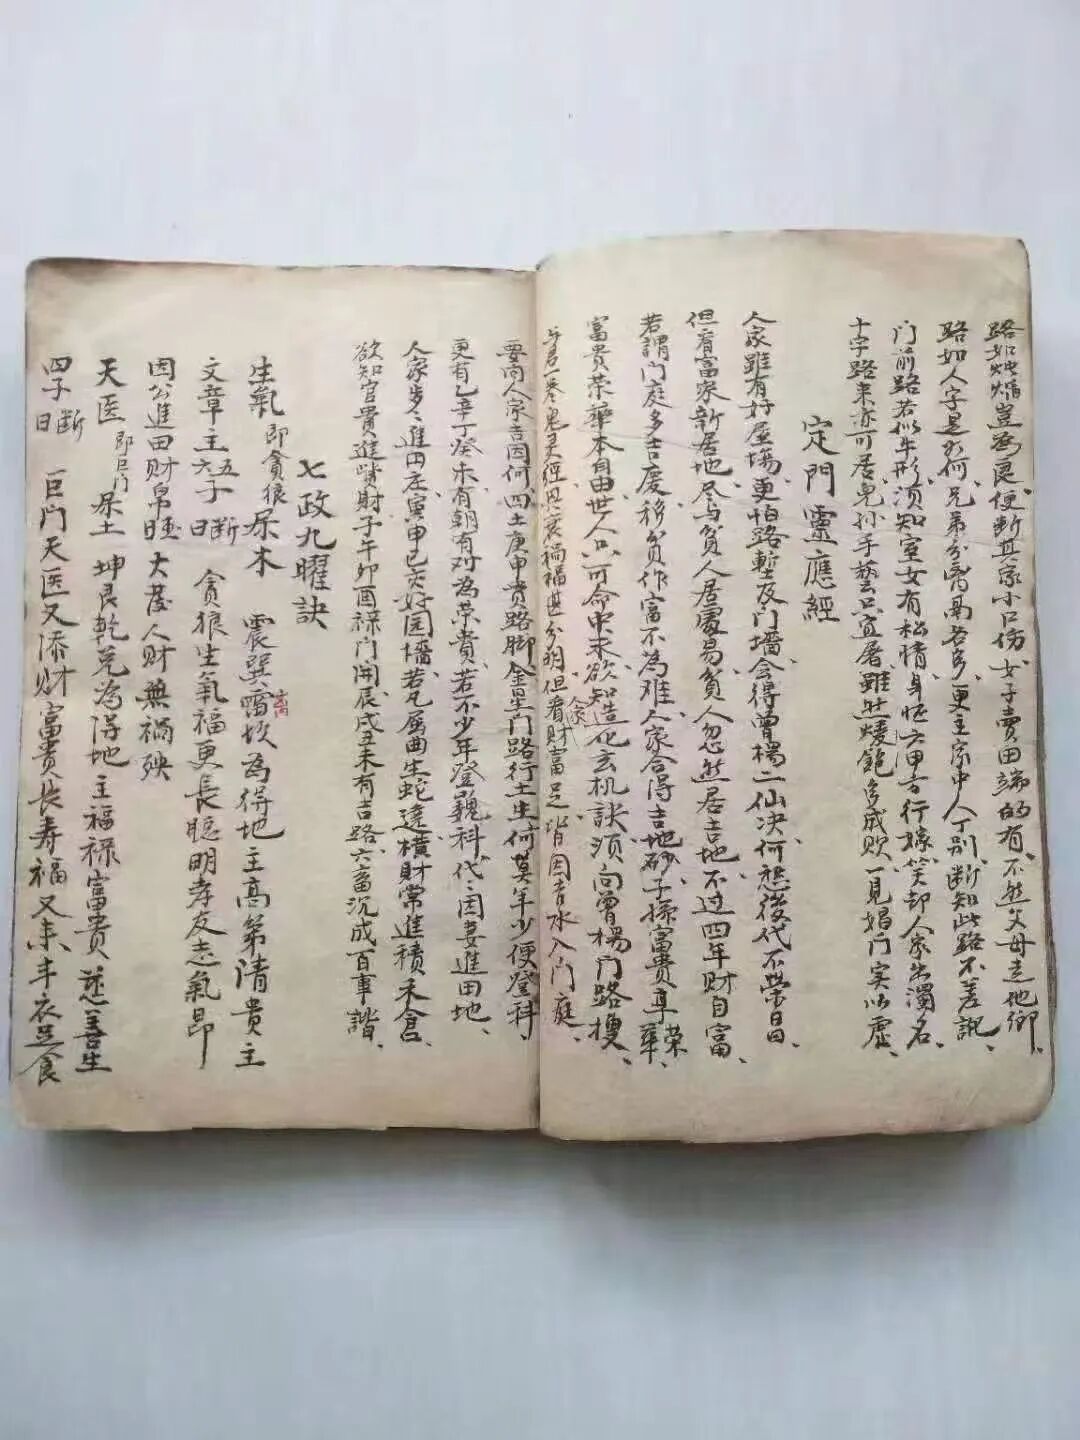 路如烛焰豈為良、便斷其家小口伤、女子賣田端的有、不然父母走他鄉、
路如人字是如何、兄弟分南各多、更主家中人丁別、断知此路不差訛、
门前路若似牛形、須知室女有松情、身怀六甲方行嫁、笑却人家出濁名、
十字路来亦可居、兒孫手藝只宜屠、雖然暖飽多成败、一見娼门实以虚、
定門靈應經
人家雖有好屋場、更怕路塹反门墻、会得曾楊二仙决、何愁後代不荣昌、
但看富家新居地、尽与贫人居處易、贫人忽然居吉地、不过四年财自富、
若謂门庭多吉慶、移贫作富不為难、人家合得吉地砂、子孫富貴享榮華
富貴荣華本自由、世人只可命中求、欲知造化玄机訣、須向曾楊门路搜、
与君一卷鬼灵經、思衰禍福甚分明、但看财富足家、皆因吉水入门庭、
要向人家吉因何、四土庚甲貴路脚、金星门路行土生、何莫年少便登科、
更有乙辛丁癸未、有朝有对為荣貴、若不少年登魏科、代代因妻進田地、
人家步步進田庄、寅申巳亥好园墻、若凡屈曲生蛇遠、横财常進積禾倉、
欲知官貴進財、子午卯酉禄门開、辰戌丑未有吉路、六畜沉成百事諧、
七政九曜訣
生氣即貪狼 屬木 震巽離坎為得地主高第清貴主
文章主五六子 日斷 貪狼生氣福更長聪明孝友志氣昂
因公進田财帛日進 大產人财無禍殃
天医即巨门 屬土 坤艮乾兑為得地主福禄富貴慈善生
四子日斷 巨门天医又添财富貴長寿福又来丰衣足食